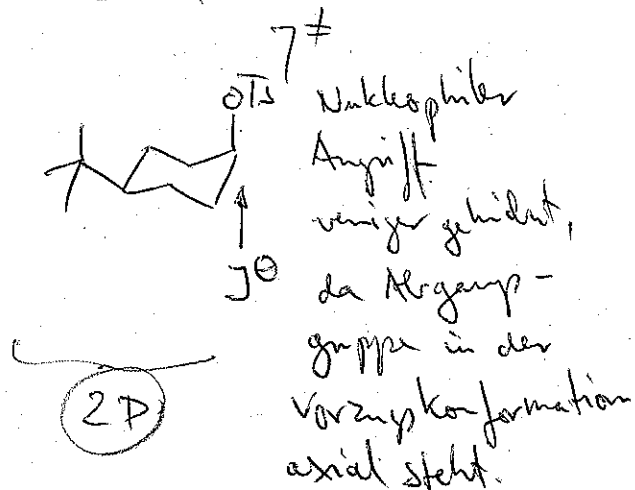 ] ≠
OTs
Nukleophiler
Angriff
weniger gehindert,
J⊖
da Abgangs-
gruppe in der
Vorzugskonformation
axial steht.
2P